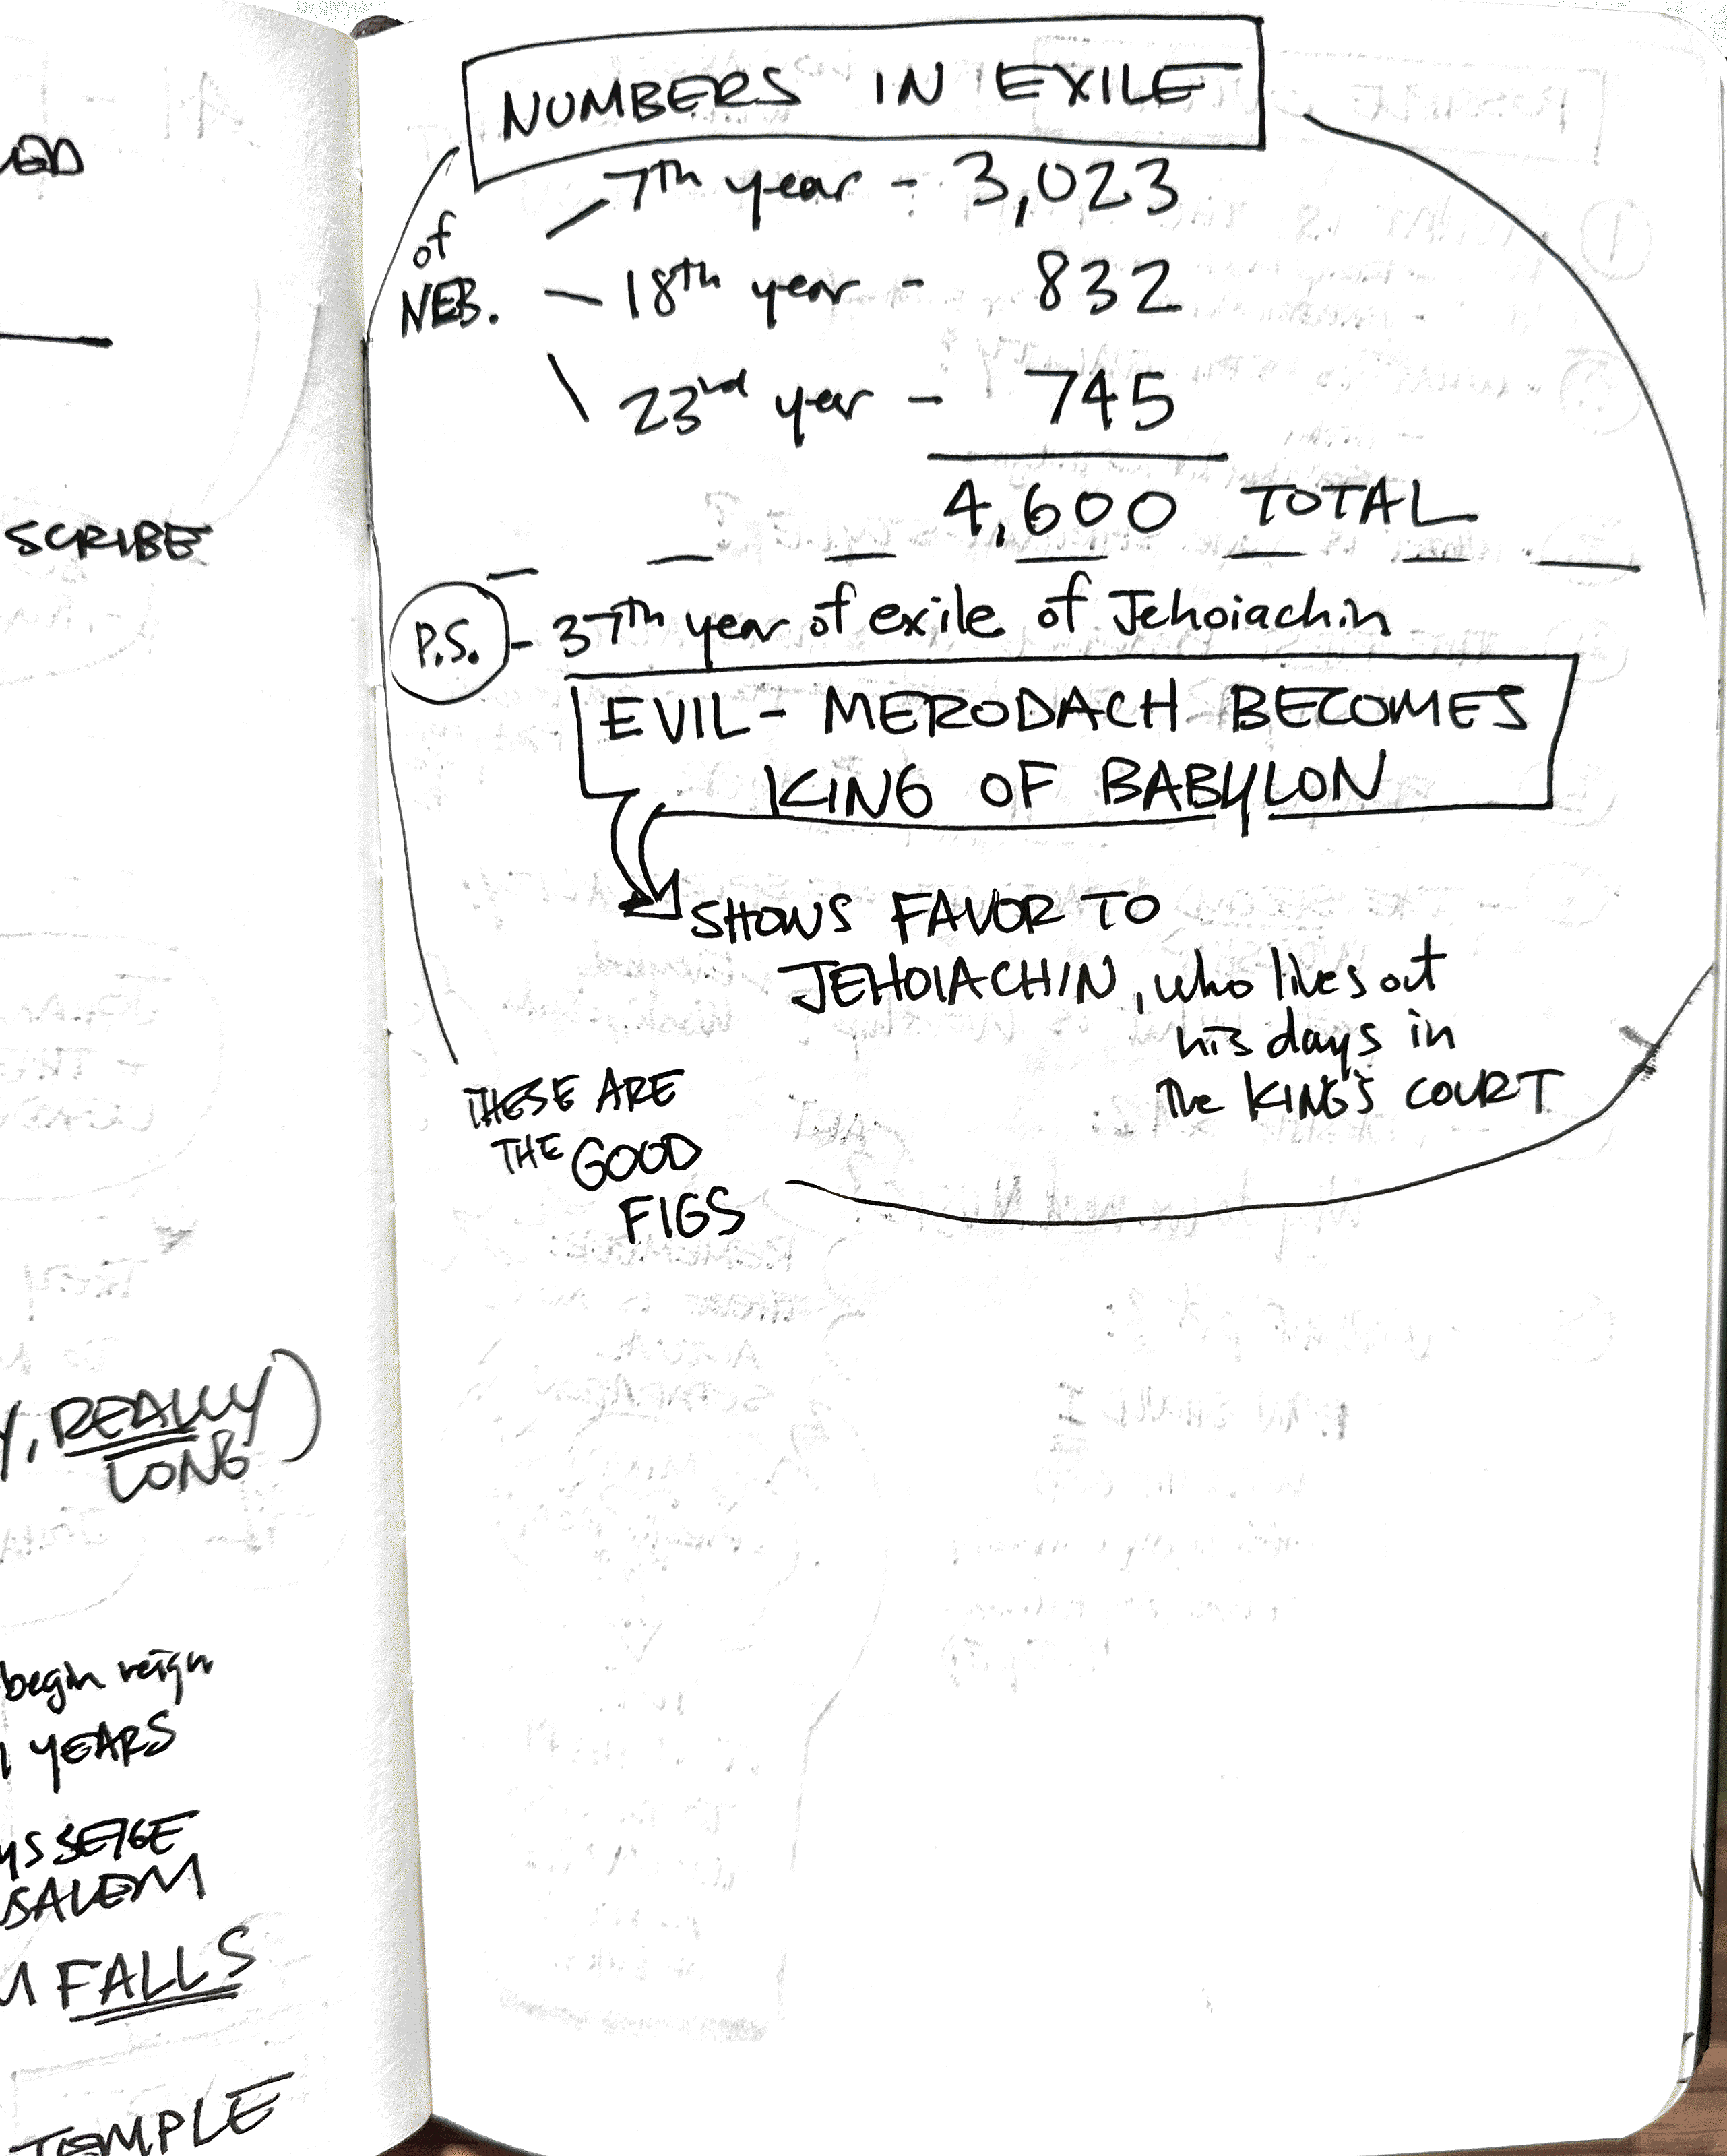 SCRIBE
REALLY)
LONG
begin reign
YEARS
SEIGE
FALLS
TEMPLE
NUMBERS IN EXILE
of
NEB.
7th year - 3,023
18th year - 832
23rd year - 745
4,600 TOTAL
P.S. - 37th year of exile of Jehoiachin
EVIL-MERODACH BECOMES
KING OF BABYLON
SHOWS FAVOR TO
JEHOIACHIN, who lives out
his days in
The KING'S COURT
THESE ARE
THE GOOD
FIGS